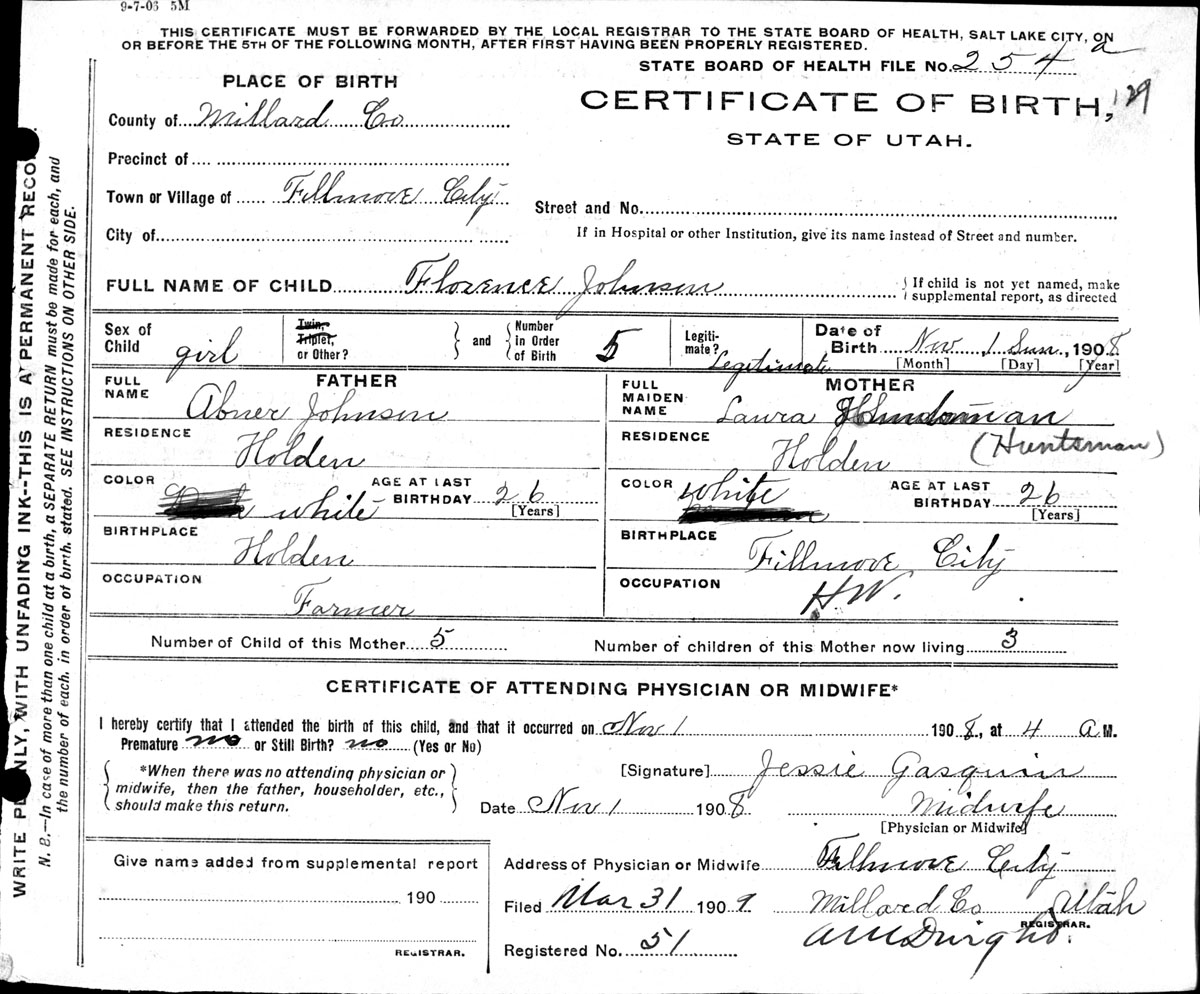 9-7-06 5M
THIS CERTIFICATE MUST BE FORWARDED BY THE LOCAL REGISTRAR TO THE STATE BOARD OF HEALTH, SALT LAKE CITY, ON
OR BEFORE THE 5TH OF THE FOLLOWING MONTH, AFTER FIRST HAVING BEEN PROPERLY REGISTERED.
STATE BOARD OF HEALTH FILE No. 254 a
PLACE OF BIRTH
CERTIFICATE OF BIRTH, 129
STATE OF UTAH.
County of Millard Co
Precinct of
Town or Village of Fillmore City
Street and No.
City of
If in Hospital or other Institution, give its name instead of Street and number.
FULL NAME OF CHILD Florence Johnson
If child is not yet named, make
supplemental report, as directed
Sex of Child girl
Twin, Triplet, or Other?
and
Number in Order of Birth 5
Legitimate? Legitimate
Date of Birth Nov 1 Sun, 1908
[Month] [Day] [Year]
FATHER
FULL NAME Abner Johnson
RESIDENCE Holden
COLOR white
AGE AT LAST BIRTHDAY 26
[Years]
BIRTHPLACE Holden
OCCUPATION Farmer
MOTHER
FULL MAIDEN NAME Laura
(Huntsman)
RESIDENCE Holden
COLOR White
AGE AT LAST BIRTHDAY 26
[Years]
BIRTHPLACE Fillmore City
OCCUPATION HW.
Number of Child of this Mother 5
Number of children of this Mother now living 3
CERTIFICATE OF ATTENDING PHYSICIAN OR MIDWIFE*
I hereby certify that I attended the birth of this child, and that it occurred on Nov 1 1908, at 4 A M.
Premature no or Still Birth? no (Yes or No)
*When there was no attending physician or
midwife, then the father, householder, etc.,
should make this return.
[Signature] Jessie Gasquin
Date Nov 1 1908 Midwife
[Physician or Midwife]
Give name added from supplemental report
190
REGISTRAR.
Address of Physician or Midwife Fillmore City
Filed Mar 31 1909 Millard Co Utah
REGISTRAR.
Registered No. 51
WRITE PLAINLY, WITH UNFADING INK--THIS IS A PERMANENT RECORD.
N. B.—In case of more than one child at a birth, a SEPARATE RETURN must be made for each, and
the number of each, in order of birth, stated. SEE INSTRUCTIONS ON OTHER SIDE.